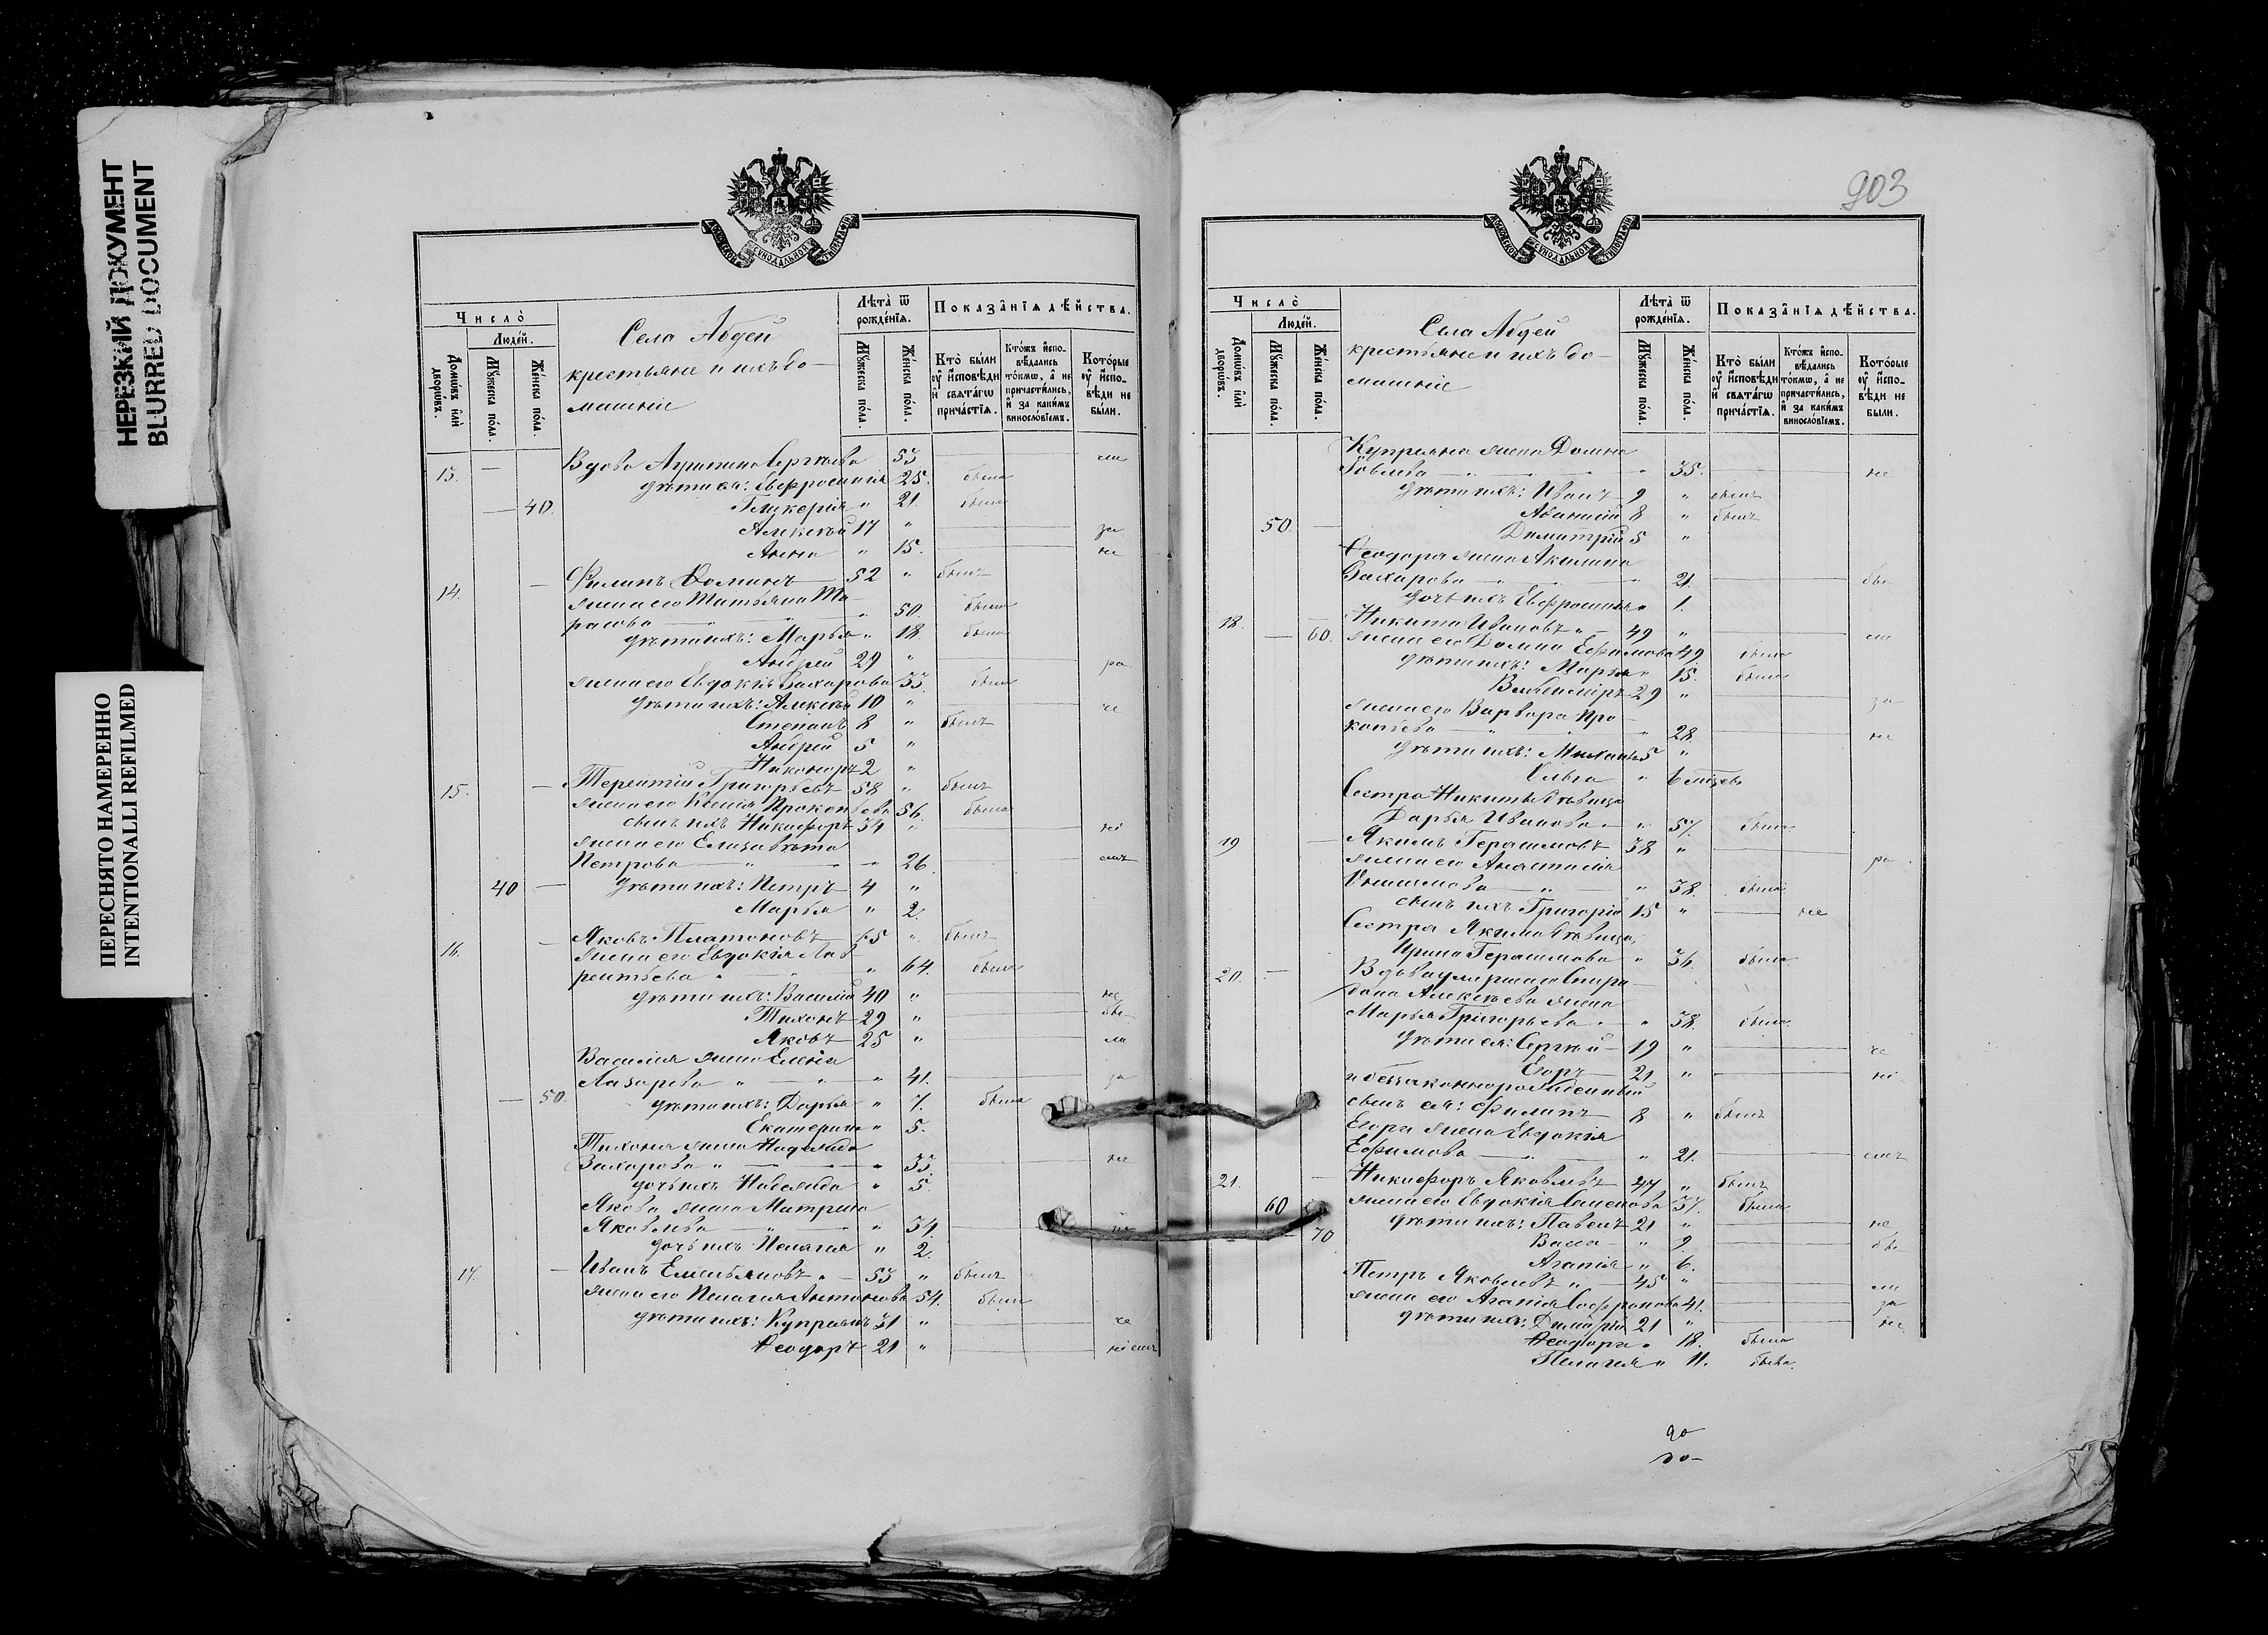 НЕРЕЗКИЙ ДОКУМЕНТ
BLURRED DOCUMENT
ПЕРЕСНЯТО НАМЕРЕННО
INTENTIONALLI REFILMED
Число̀
Люде́й.
Домѡ́въ и҆лѝ дворѡ́въ.
Мꙋ́жеска по́ла.
Же́нска по́ла.
Села Абдеи
крестьяне и ихъ до-
машніе
Лѣта̀ ѿ рожде́нїѧ.
Мꙋ́жеска по́ла.
Же́нска по́ла.
Показа̑нїѧ дѣ́йства.
Кто̀ бы́ли оу҆ и҆сповѣ́ди и҆ свѧта́гѡ прича́стїѧ.
Кто́жъ и҆спо-вѣ́дались то́кмѡ, а҆ не причасти́лись, и҆ за каки́мъ винослѡ́вїемъ.
Кото́рые оу҆ и҆спо-вѣ́ди не бы́ли.
13. — Вдова Агрипина Сергѣева 53
дѣти ея: Евфросинія 25. была
— 40. Гликерія " 21. была
Алексѣй 17 " за
Анна " 15. не
14. — Филипъ Фоминъ 52 " былъ
жена его Татьяна Та-
расова " 50 была
дѣти ихъ: Марья " 18. была
Андрей 29 " ра
жена его Евдокія Захарова 33. была
дѣти ихъ: Алексѣй 10 " не
Стефанъ 8 " былъ
Андрей 5 "
Никоноръ 2 "
15. — Терентій Григорьевъ 58 " былъ
жена его Ксенія Прокопьева 56. была
сынъ ихъ Никифоръ 34 "
жена его Елизавета
Петрова " 26.
40 — дѣти ихъ: Петръ 4 "
Марья " 2.
16. — Яковъ Платоновъ 65 " былъ
жена его Евдокія Лав-
рентьева " 64. была
дѣти ихъ: Василій 40 " не
Тихонъ 29 " бы
Яковъ 25 " ла
Василія жена Елена
Лазарева " 41. за
— 50. дѣти ихъ: Дарья " 7. была
Екатерина " 5.
Тихона жена Надежда
Захарова " 33. не
дочь ихъ Надежда " 5.
Якова жена Матрена
Яковлева " 34
дочь ихъ Пелагія " 2.
17. — Иванъ Емельяновъ 55 " былъ
жена его Пелагія Антонова 54. была
дѣти ихъ: Купреянъ 31 " не
Ѳеодоръ 21 "
903
Число̀
Люде́й.
Домѡ́въ и҆лѝ дворѡ́въ.
Мꙋ́жеска по́ла.
Же́нска по́ла.
Села Абдеи
крестьяне и ихъ до-
машніе
Лѣта̀ ѿ рожде́нїѧ.
Мꙋ́жеска по́ла.
Же́нска по́ла.
Показа̑нїѧ дѣ́йства.
Кто̀ бы́ли оу҆ и҆сповѣ́ди и҆ свѧта́гѡ прича́стїѧ.
Кто́жъ и҆спо-вѣ́дались то́кмѡ, а҆ не причасти́лись, и҆ за каки́мъ винослѡ́вїемъ.
Кото́рые оу҆ и҆спо-вѣ́ди не бы́ли.
Купреяна жена Домна
Іовлева " 35. не
дѣти ихъ: Иванъ 9 " былъ
Аѳанасій 8 " былъ
50. — Димитрій 5 "
Ѳеодора жена Акилина
Захарова " 21. бы
дочь ихъ Евфросинія " 1.
18. — Никита Ивановъ " 49 "
— 60. жена его Домна Ефимова 49. была
дѣти ихъ: Марья " 15. была
Владиміръ 29 " за
жена его Варвара Про-
копьева " 28. не
дѣти ихъ: Михаилъ 5 "
Ольга " 6 мѣсяцевъ
Сестра Никиты дѣвица
Дарья Иванова " 57. была
19 — Якимъ Герасимовъ 38 " ра
жена его Анастасія
Онисимова " 38. была
сынъ ихъ Григорій 15 " не
Сестра Якима дѣвица
Ирина Герасимова " 34. была
20. — Вдова умершаго Спири-
дона Алексѣева жена
Марья Григорьева " 38. была
дѣти ея: Сергѣй 19 " не
Егоръ 21 " не
и беззаконнорожденный
сынъ ея: Филипъ 8 " былъ
Егора жена Евдокія
Ефимова " 21.
21. — Никифоръ Яковлевъ 47 " былъ
60 жена его Евдокія Семенова 37. была
дѣти ихъ: Павелъ 21 " не
— 70 Васса " 9. бы
Агапія " 6.
Петръ Яковлевъ " 45 "
жена его Агапія Софронова 41. за
дѣти ихъ: Димитрій 21 " не
Ѳеодора " 18. была
Пелагія " 11. была.